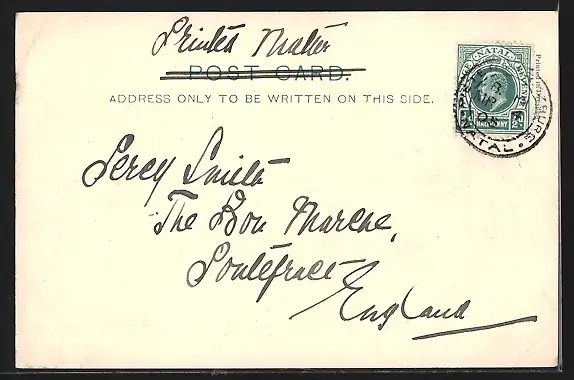 Printed Matter
POST CARD.
ADDRESS ONLY TO BE WRITTEN ON THIS SIDE.
NATAL
HALFPENNY
NATAL
Percy Smith
The Bon Marche,
Pontefract
England